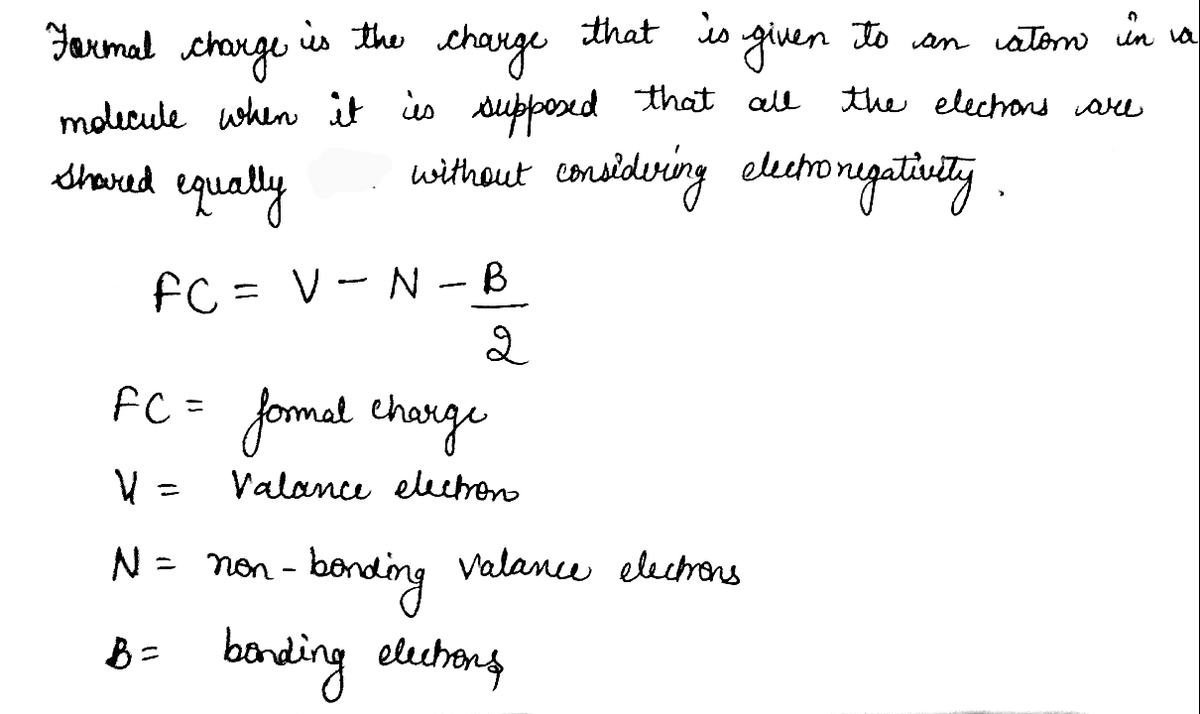 Formal charge is the charge that is given to an atom in a
molecule when it is supposed that all the electrons are
shared equally . without considering electronegativity.
FC = V - N - B/2
FC = formal charge
V = Valance electron
N = non-bonding valance electrons
B = bonding electrons